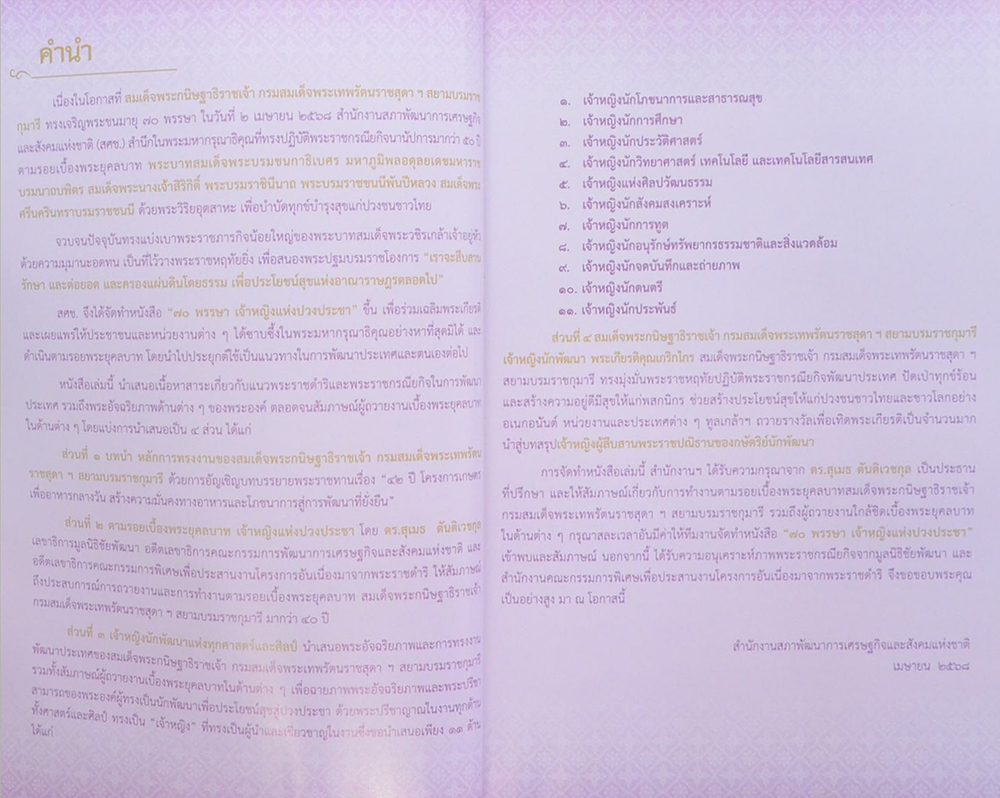 คำนำ
เนื่องในโอกาสที่ สมเด็จพระกนิษฐาธิราชเจ้า กรมสมเด็จพระเทพรัตนราชสุดา ฯ สยามบรมราช
กุมารี ทรงเจริญพระชนมายุ ๗๐ พรรษา ในวันที่ ๒ เมษายน ๒๕๖๘ สำนักงานสภาพัฒนาการเศรษฐกิจ
และสังคมแห่งชาติ (สศช.) สำนึกในพระมหากรุณาธิคุณที่ทรงปฏิบัติพระราชกรณียกิจนานัปการมากว่า ๕๐ ปี
ตามรอยเบื้องพระยุคลบาท พระบาทสมเด็จพระบรมชนกาธิเบศร มหาภูมิพลอดุลยเดชมหาราช
บรมนาถบพิตร สมเด็จพระนางเจ้าสิริกิติ์ พระบรมราชินีนาถ พระบรมราชชนนีพันปีหลวง สมเด็จพระ
ศรีนครินทราบรมราชชนนี ด้วยพระวิริยอุตสาหะ เพื่อบำบัดทุกข์บำรุงสุขแก่ปวงชนชาวไทย
จวบจนปัจจุบันทรงแบ่งเบาพระราชภารกิจน้อยใหญ่ของพระบาทสมเด็จพระวชิรเกล้าเจ้าอยู่หัว
ด้วยความมุมานะอดทน เป็นที่ไว้วางพระราชหฤทัยยิ่ง เพื่อสนองพระปฐมบรมราชโองการ "เราจะสืบสาน
รักษา และต่อยอด และครองแผ่นดินโดยธรรม เพื่อประโยชน์สุขแห่งอาณาราษฎรตลอดไป"
สศช. จึงได้จัดทำหนังสือ "๗๐ พรรษา เจ้าหญิงแห่งปวงประชา" ขึ้น เพื่อร่วมเฉลิมพระเกียรติ
และเผยแพร่ให้ประชาชนและหน่วยงานต่าง ๆ ได้ซาบซึ้งในพระมหากรุณาธิคุณอย่างหาที่สุดมิได้ และ
ดำเนินตามรอยพระยุคลบาท โดยนำไปประยุกต์ใช้เป็นแนวทางในการพัฒนาประเทศและตนเองต่อไป
หนังสือเล่มนี้ นำเสนอเนื้อหาสาระเกี่ยวกับแนวพระราชดำริและพระราชกรณียกิจในการพัฒนา
ประเทศ รวมถึงพระอัจฉริยภาพด้านต่าง ๆ ของพระองค์ ตลอดจนสัมภาษณ์ผู้ถวายงานเบื้องพระยุคลบาท
ในด้านต่าง ๆ โดยแบ่งการนำเสนอเป็น ๔ ส่วน ได้แก่
ส่วนที่ ๑ บทนำ หลักการทรงงานของสมเด็จพระกนิษฐาธิราชเจ้า กรมสมเด็จพระเทพรัตน
ราชสุดา ฯ สยามบรมราชกุมารี ด้วยการอัญเชิญบทบรรยายพระราชทานเรื่อง "๔๒ ปี โครงการเกษตร
เพื่ออาหารกลางวัน สร้างความมั่นคงทางอาหารและโภชนาการสู่การพัฒนาที่ยั่งยืน"
ส่วนที่ ๒ ตามรอยเบื้องพระยุคลบาท เจ้าหญิงแห่งปวงประชา โดย ดร.สุเมธ ตันติเวชกุล
เลขาธิการมูลนิธิชัยพัฒนา อดีตเลขาธิการคณะกรรมการพัฒนาการเศรษฐกิจและสังคมแห่งชาติ และ
อดีตเลขาธิการคณะกรรมการพิเศษเพื่อประสานงานโครงการอันเนื่องมาจากพระราชดำริ ให้สัมภาษณ์
ถึงประสบการณ์การถวายงานและการทำงานตามรอยเบื้องพระยุคลบาท สมเด็จพระกนิษฐาธิราชเจ้า
กรมสมเด็จพระเทพรัตนราชสุดา ฯ สยามบรมราชกุมารี มากว่า ๔๐ ปี
ส่วนที่ ๓ เจ้าหญิงนักพัฒนาแห่งทุกศาสตร์และศิลป์ นำเสนอพระอัจฉริยภาพและการทรงงาน
พัฒนาประเทศของสมเด็จพระกนิษฐาธิราชเจ้า กรมสมเด็จพระเทพรัตนราชสุดา ฯ สยามบรมราชกุมารี
รวมทั้งสัมภาษณ์ผู้ถวายงานเบื้องพระยุคลบาทในด้านต่าง ๆ เพื่อฉายภาพพระอัจฉริยภาพและพระปรีชา
สามารถของพระองค์ผู้ทรงเป็นนักพัฒนาเพื่อประโยชน์สุขสู่ปวงประชา ด้วยพระปรีชาญาณในงานทุกด้าน
ทั้งศาสตร์และศิลป์ ทรงเป็น "เจ้าหญิง" ที่ทรงเป็นผู้นำและเชี่ยวชาญในงานซึ่งขอนำเสนอเพียง ๑๑ ด้าน
ได้แก่
๑. เจ้าหญิงนักโภชนาการและสาธารณสุข
๒. เจ้าหญิงนักการศึกษา
๓. เจ้าหญิงนักประวัติศาสตร์
๔. เจ้าหญิงนักวิทยาศาสตร์ เทคโนโลยี และเทคโนโลยีสารสนเทศ
๕. เจ้าหญิงแห่งศิลปวัฒนธรรม
๖. เจ้าหญิงนักสังคมสงเคราะห์
๗. เจ้าหญิงนักการทูต
๘. เจ้าหญิงนักอนุรักษ์ทรัพยากรธรรมชาติและสิ่งแวดล้อม
๙. เจ้าหญิงนักจดบันทึกและถ่ายภาพ
๑๐. เจ้าหญิงนักดนตรี
๑๑. เจ้าหญิงนักประพันธ์
ส่วนที่ ๔ สมเด็จพระกนิษฐาธิราชเจ้า กรมสมเด็จพระเทพรัตนราชสุดา ฯ สยามบรมราชกุมารี
เจ้าหญิงนักพัฒนา พระเกียรติคุณเกริกไกร สมเด็จพระกนิษฐาธิราชเจ้า กรมสมเด็จพระเทพรัตนราชสุดา ฯ
สยามบรมราชกุมารี ทรงมุ่งมั่นพระราชหฤทัยปฏิบัติพระราชกรณียกิจพัฒนาประเทศ ปัดเป่าทุกข์ร้อน
และสร้างความอยู่ดีมีสุขให้แก่พสกนิกร ช่วยสร้างประโยชน์สุขให้แก่ปวงชนชาวไทยและชาวโลกอย่าง
อเนกอนันต์ หน่วยงานและประเทศต่าง ๆ ทูลเกล้าฯ ถวายรางวัลเพื่อเทิดพระเกียรติเป็นจำนวนมาก
นำสู่บทสรุปเจ้าหญิงผู้สืบสานพระราชปณิธานของกษัตริย์นักพัฒนา
การจัดทำหนังสือเล่มนี้ สำนักงานฯ ได้รับความกรุณาจาก ดร.สุเมธ ตันติเวชกุล เป็นประธาน
ที่ปรึกษา และให้สัมภาษณ์เกี่ยวกับการทำงานตามรอยเบื้องพระยุคลบาทสมเด็จพระกนิษฐาธิราชเจ้า
กรมสมเด็จพระเทพรัตนราชสุดา ฯ สยามบรมราชกุมารี รวมถึงผู้ถวายงานใกล้ชิดเบื้องพระยุคลบาท
ในด้านต่าง ๆ กรุณาสละเวลาอันมีค่าให้ทีมงานจัดทำหนังสือ "๗๐ พรรษา เจ้าหญิงแห่งปวงประชา"
เข้าพบและสัมภาษณ์ นอกจากนี้ ได้รับความอนุเคราะห์ภาพพระราชกรณียกิจจากมูลนิธิชัยพัฒนา และ
สำนักงานคณะกรรมการพิเศษเพื่อประสานงานโครงการอันเนื่องมาจากพระราชดำริ จึงขอขอบพระคุณ
เป็นอย่างสูง มา ณ โอกาสนี้
สำนักงานสภาพัฒนาการเศรษฐกิจและสังคมแห่งชาติ
เมษายน ๒๕๖๘